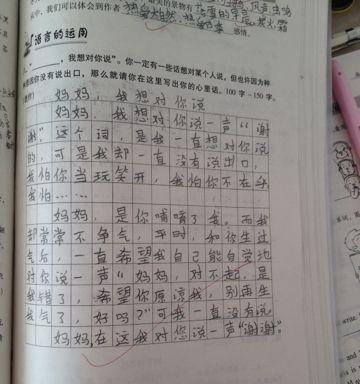 中，我们可以体会到作者热爱大自然，
感情。
语言的运用
“______，我想对你说”。你一定有一些话想对某个人说，但也许因为种
原因你没有说出口，那么就请你在这里写出你的心里话。100字~150字。
妈妈，我想对你说
妈妈，我想对你说一声“谢
谢”这个词，是我一直想对你说
的，可是我却一直没有说出口，
我怕你当玩笑开，我怕你不在乎
我怕……
妈妈，是你哺哺了我。而我
却常常不争气，平时，和你生过
气后，一直希望我自己能自觉地
对你说一声“妈妈，对不起，是
我错了，希望你原谅我，别再生
我气了，好吗？”可我一直没有说
妈妈，在这我对您说一声“谢谢”。